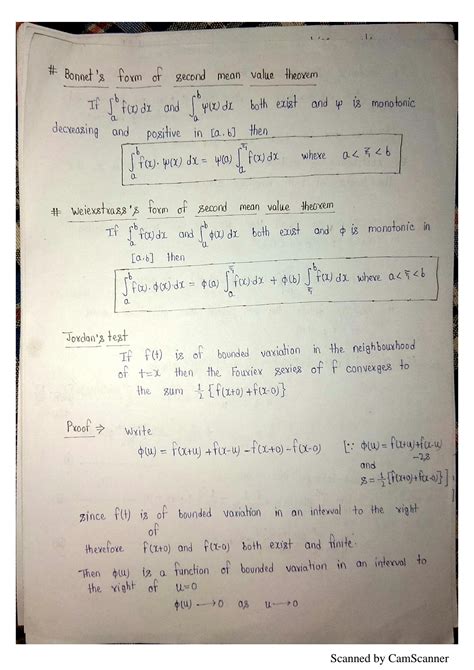 # Bonnet's form of second mean value theorem
If ∫_a^b f(x) dx and ∫_a^b ψ(x) dx both exist and ψ is monotonic
decreasing and positive in [a.b] then
∫_a^b f(x). ψ(x) dx = ψ(a) ∫_a^ξ f(x) dx where a < ξ < b
# Weierstrass's form of second mean value theorem
If ∫_a^b f(x) dx and ∫_a^b ϕ(x) dx both exist and ϕ is monotonic in
[a.b] then
∫_a^b f(x). ϕ(x) dx = ϕ(a) ∫_a^ξ f(x) dx + ϕ(b) ∫_ξ^b f(x) dx where a<ξ<b
Jordan's test
If f(t) is of bounded variation in the neighbourhood
of t=x then the Fourier series of f converges to
the sum ½ {f(x+0)+f(x-0)}
Proof ⇒ Write
ϕ(u) = f(x+u) +f(x-u) -f(x+0) -f(x-0) [∵ ϕ(u) = f(x+u)+f(x-u)
-2s
and
s = ½{f(x+0)+f(x-0)}]
since f(t) is of bounded variation in an interval to the right
of
therefore f(x+0) and f(x-0) both exist and finite.
Then ϕ(u) is a function of bounded variation in an interval to
the right of u=0
ϕ(u) → 0 as u → 0
Scanned by CamScanner